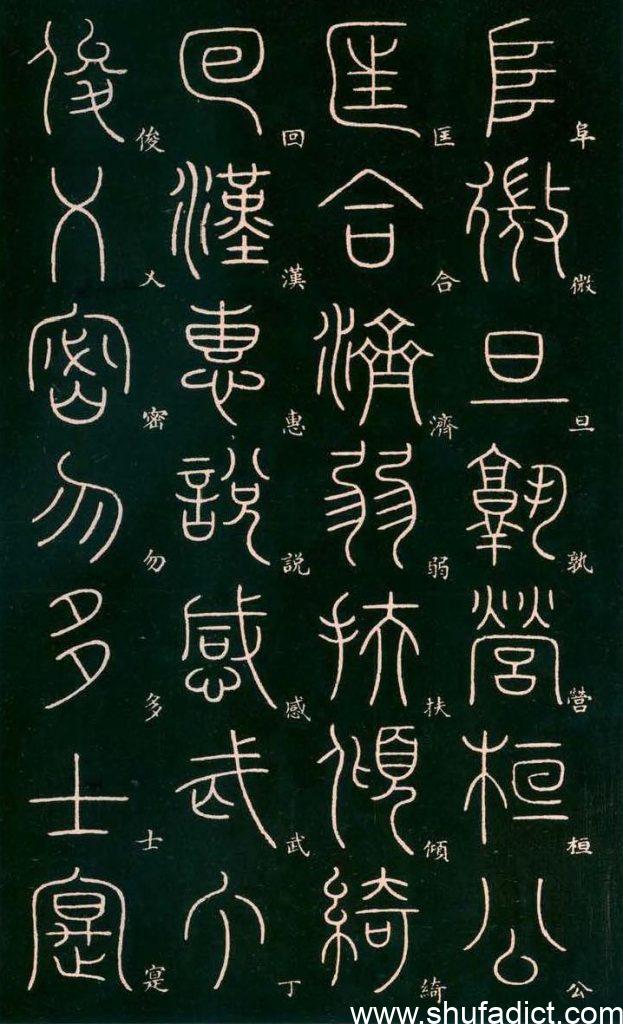 阜微旦孰營桓公
阜微旦孰營桓公
匡合濟弱扶傾綺
匡合濟弱扶傾綺
回漢惠說感武丁
回漢惠説感武丁
俊乂密勿多士寔
俊乂密勿多士寔
www.shufadict.com